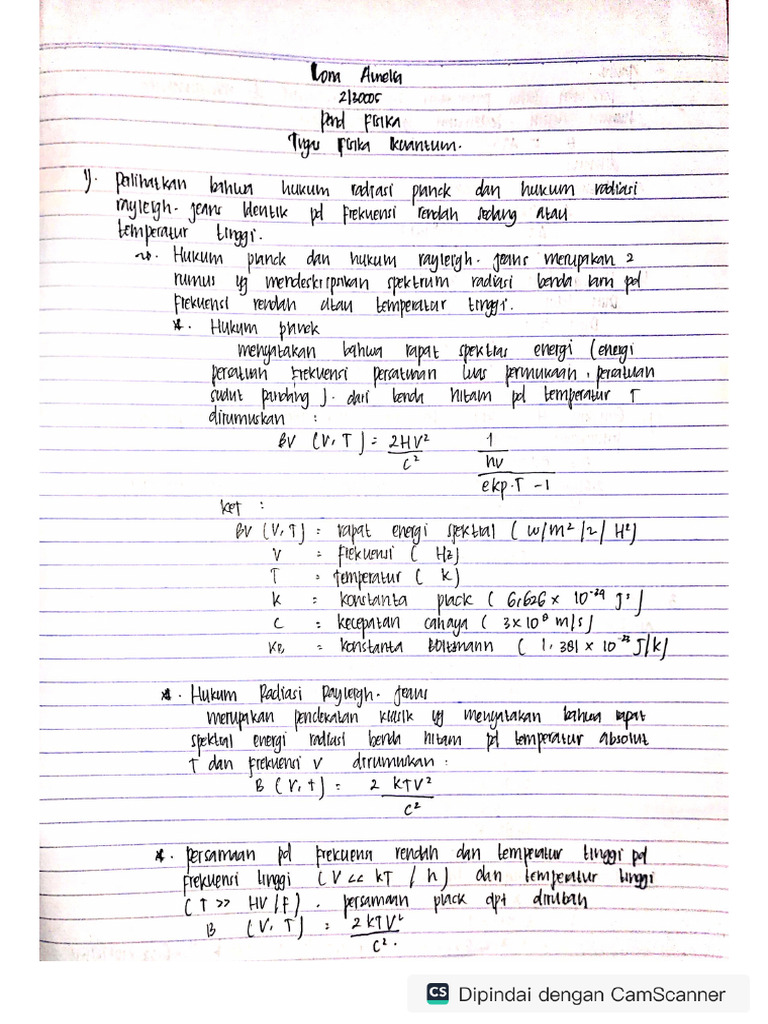 Lona Amelia
2130005
Pend Fisika
Tugas Fisika Kuantum.
1). Perlihatkan bahwa hukum radiasi planck dan hukum radiasi
rayleigh-jeans identik pd frekuensi rendah sedang atau
temperatur tinggi.
Hukum planck dan hukum rayleigh-jeans merupakan 2
rumus yg mendeskripsikan spektrum radiasi benda itam pd
frekuensi rendah atau temperatur tinggi.
*. Hukum planck
menyatakan bahwa rapat spektras energi (energi
persatuan frekuensi persatuan luas permukaan, persatuan
sudut pandang). dari benda hitam pd temperatur T
dirumuskan :
BV (V,T) = 2HV² / C² 1 / hv / e kp.T - 1
ket :
BV (V,T) = rapat energi spektral ( W/m²/2/ H²)
V = frekuensi ( Hz)
T = temperatur ( k)
k = konstanta plack ( 6,626 x 10⁻²⁹ J s)
C = kecepatan cahaya ( 3x10⁸ m/s)
KB = konstanta boltzmann ( 1,381 x 10⁻²³ J/k)
*. Hukum Radiasi Rayleigh-jeans
merupakan pendekatan klasik yg menyatakan bahwa rapat
spektral energi radiasi benda hitam pd temperatur absolut
T dan frekuensi v dirumuskan :
B (V,t) = 2 kTV² / C²
*. persamaan pd frekuensi rendah dan temperatur tinggi pd
frekuensi tinggi (V << kT / h) dan temperatur tinggi
(T >> HV/F). persamaan plack dpt dirubah
B (V,T) = 2kTV² / C².
CS Dipindai dengan CamScanner